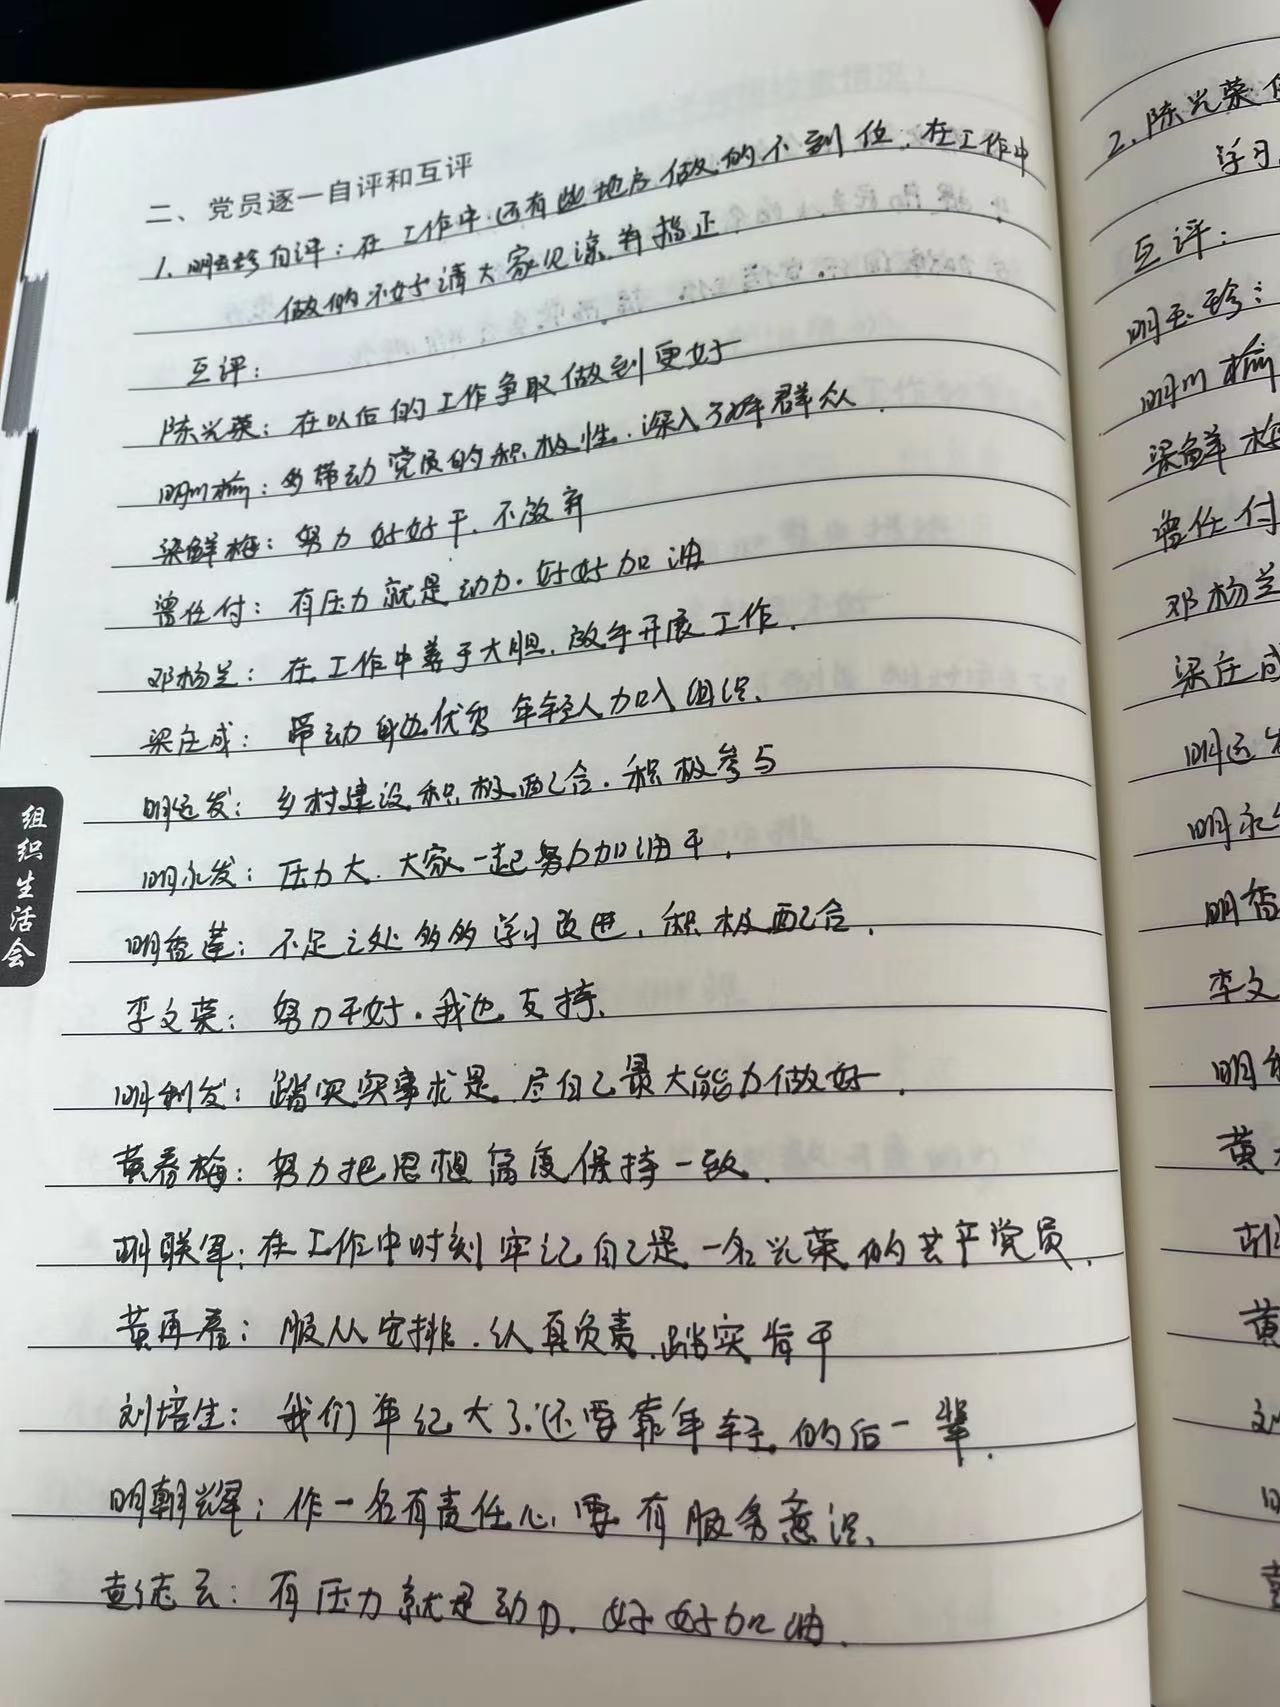 二、党员逐一自评和互评
1. 明玉珍自评：在工作中.还有些地方做的不到位.在工作中
做的不好请大家见谅.并指正.
互评：
陈兴荣：在以后的工作争取做到更好
明川榆：多带动党员的积极性.深入了解群众.
梁鲜梅：努力好好干.不放弃
曾任付：有压力就是动力.好好加油
邓杨兰：在工作中善于大胆.放手开展工作.
梁庄成：带动身边优秀年轻人加入组织.
明远发：乡村建设积极配合.积极参与
明永发：压力大.大家一起努力加油干.
明香莲：不足之处多多学习改进.积极配合.
李文荣：努力干好.我也支持.
明利发：踏实实事求是.尽自己最大能力做好.
黄春梅：努力把思想高度保持一致.
胡联军：在工作中时刻牢记自己是一名光荣的共产党员.
黄再春：服从安排.认真负责.踏实肯干
刘培生：我们年纪大了.还要靠年轻的后一辈.
明朝辉：作一名有责任心.要有服务意识.
袁德云：有压力就是动力.好好加油.
组织生活会
2. 陈兴荣
学习
互评：
明玉珍：
明川榆
梁鲜梅
曾任付
邓杨兰
梁庄成
明远发
明永
明香
李文
明
黄
胡
黄
刘
明